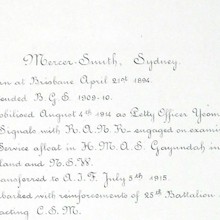 Mercer-Smith, Sydney.
rn at Brisbane April 21st 1894.
ended B.G.S. 1909-10.
obilised August 4th 1914 as Petty Officer Yeom
Signals with R.A.N.R. engaged on exami
Service afloat in H.M.A.S. Gayundah in
land and N.S.W.
ransferred to A.I.F. July 5th 1915.
barked with reinforcements of 25th Battalion
acting C.S.M.